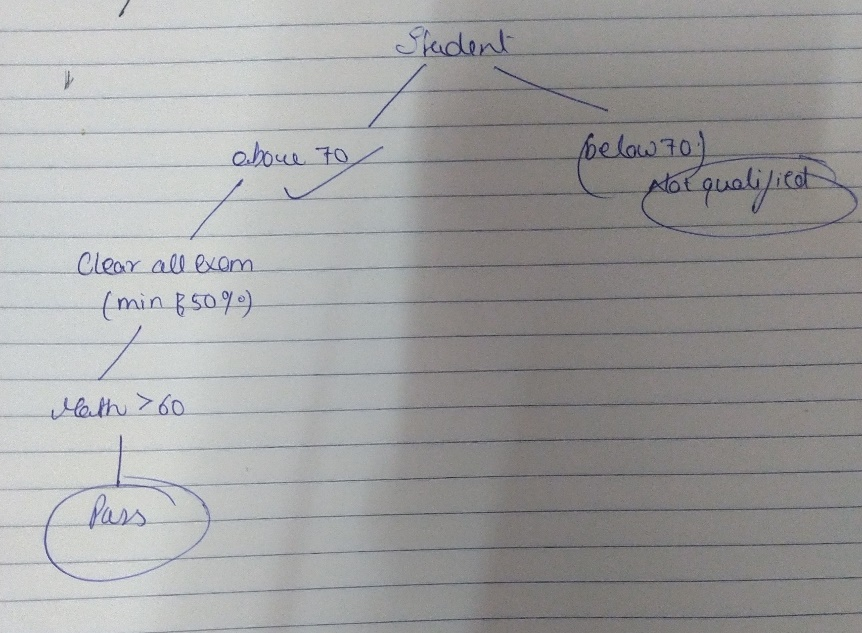 Student
above 70
(below 70)
Not qualified
Clear all exam
(min 50%)
Math >60
Pass